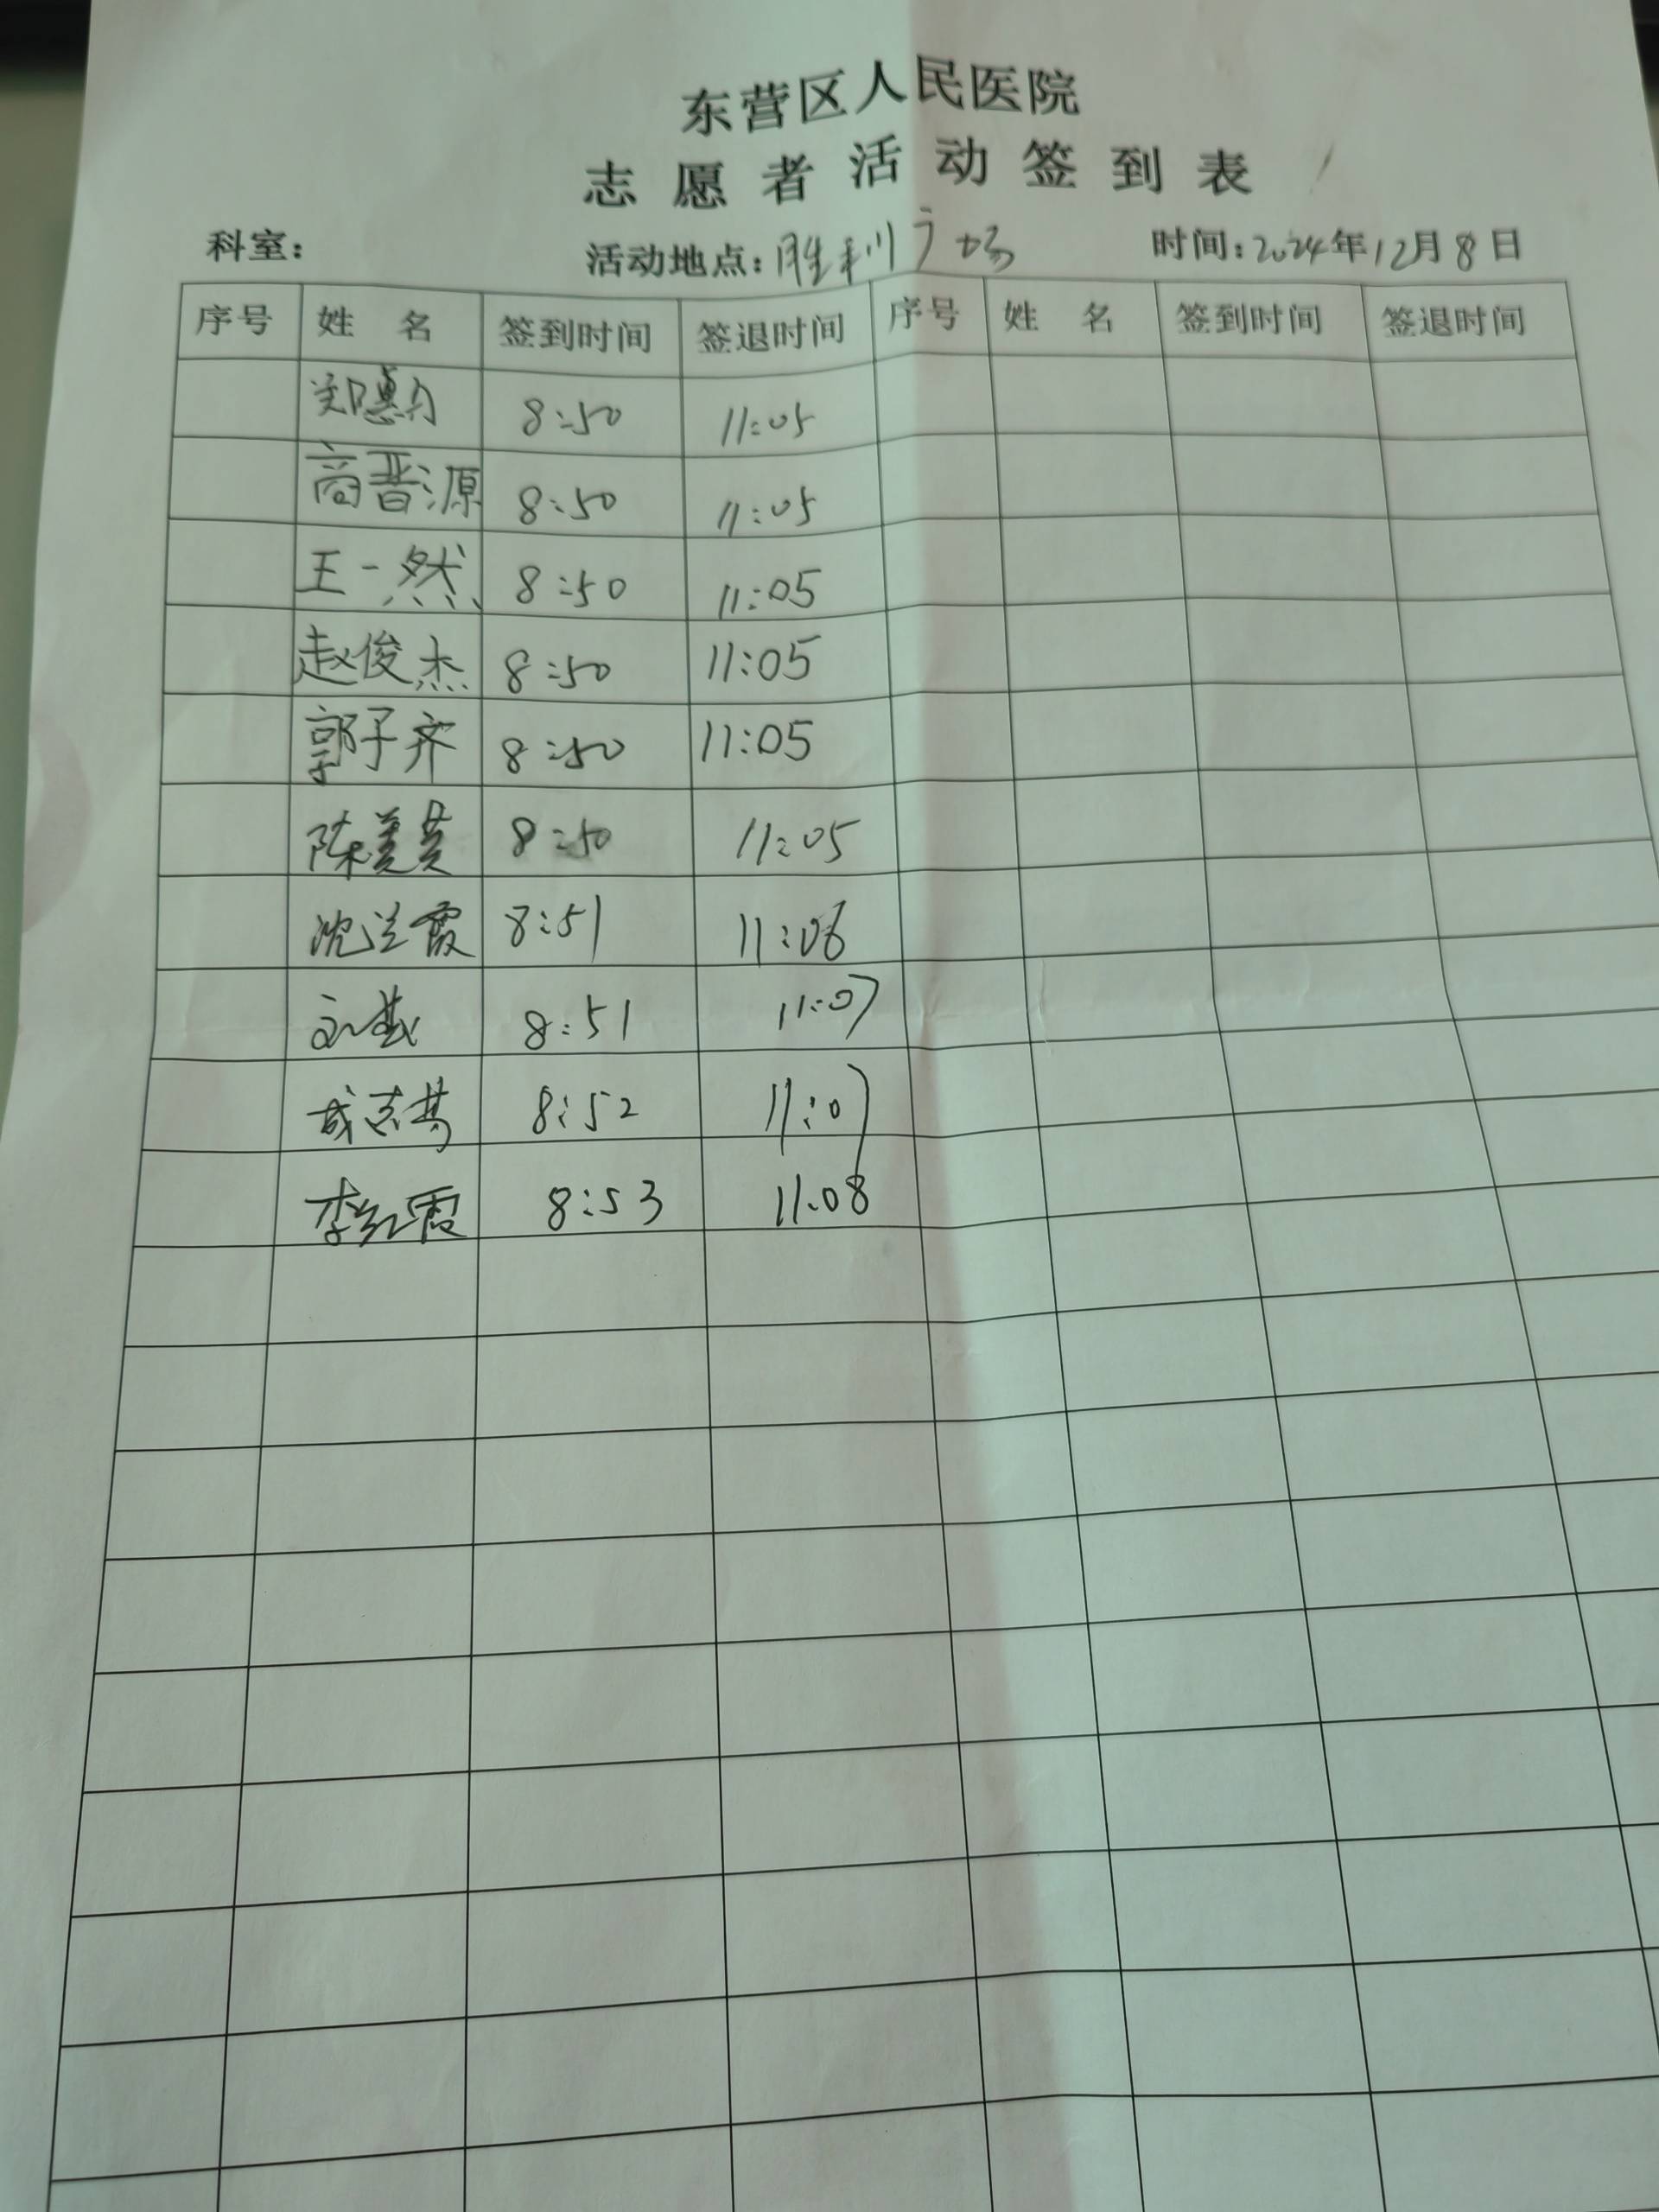 东营区人民医院
志愿者活动签到表
科室： 活动地点：胜利广场 时间：2024年12月8日
序号 姓 名 签到时间 签退时间 序号 姓 名 签到时间 签退时间
郑惠丹 8:50 11:05
商晋源 8:50 11:05
王一然 8:50 11:05
赵俊杰 8:50 11:05
郭子齐 8:50 11:05
陈美英 8:50 11:05
沈兰霞 8:51 11:06
8:51 11:07
成志英 8:52 11:07
李红霞 8:53 11:08